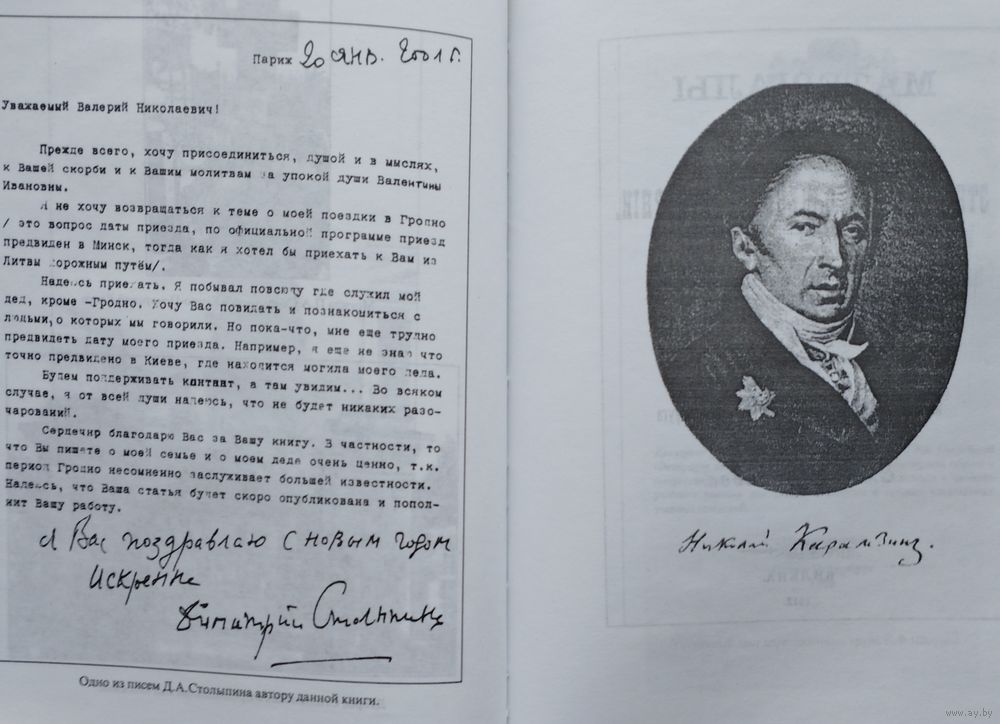 Париж 20 янв. 2001 г.
Уважаемый Валерий Николаевич!
Прежде всего, хочу присоединиться, душой и в мыслях,
к Вашей скорби и к Вашим молитвам за упокой души Валентины
Ивановны.
Я не хочу возвращаться к теме о моей поездки в Гродно
/ это вопрос даты приезда, по официальной программе приезд
предвиден в Минск, тогда как я хотел бы приехать к Вам из
Литвы дорожным путём/.
Надеюсь приехать. Я побывал повсюду где служил мой
дед, кроме -Гродно. Хочу Вас повидать и познакомиться с
людьми, о которых мы говорили. Но пока-что, мне еще трудно
предвидеть дату моего приезда. Например, я еще не знаю что
точно предвидено в Киеве, где находится могила моего деда.
Будем поддерживать контакт, а там увидим... Во всяком
случае, я от всей души надеюсь, что не будет никаких разо-
чарований.
Сердечно благодарю Вас за Вашу книгу. В частности, то
что Вы пишете о моей семье и о моем деде очень ценно, т.к.
период Гродно несомненно заслуживает большей известности.
Надеюсь, что Ваша статья будет скоро опубликована и попол-
нит Вашу работу.
я Вас поздравляю с новым годом
Искренне
Димитрий Столыпин
Одно из писем Д.А.Столыпина автору данной книги.
Николай Карамзинъ.
www.ay.by